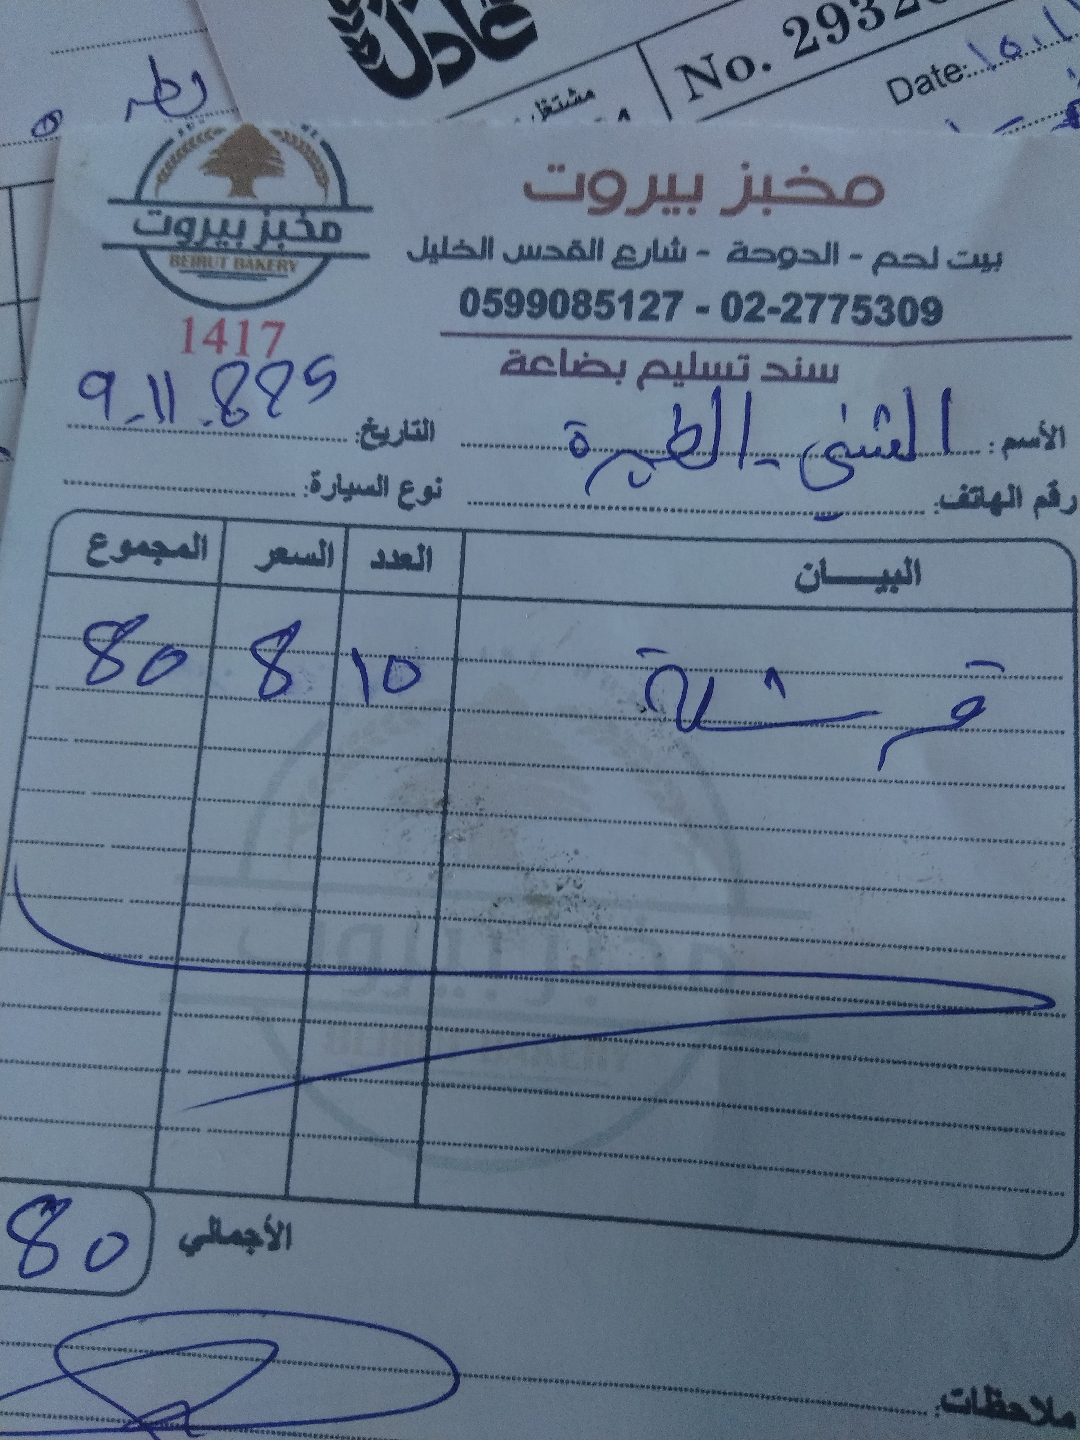 عادل
No. 2932
مشتغل
Date:
مخبز بيروت
BEIRUT BAKERY
1417
مخبز بيروت
بيت لحم - الدوحة - شارع القدس الخليل
0599085127 - 02-2775309
سند تسليم بضاعة
الأسم: المثنى - الطيرة
التاريخ: 9-11-2025
رقم الهاتف:
نوع السيارة:
البيـــــان العدد السعر المجموع
قرشلة 10 8 80
الأجمالي 80
ملاحظات: